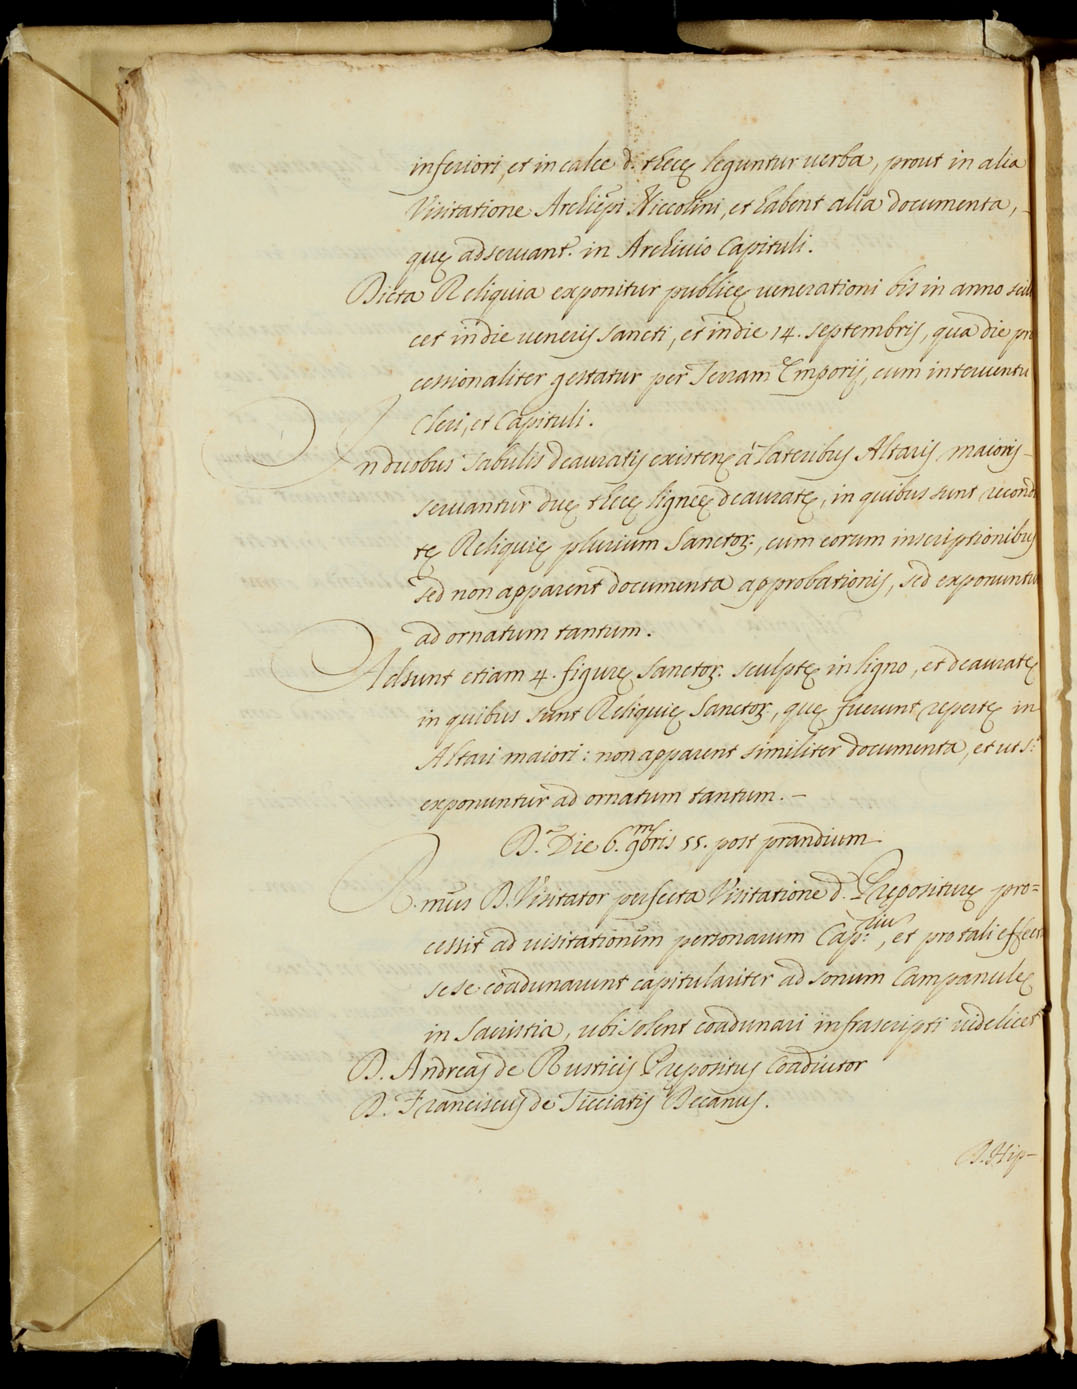 inferiori, et in calce d. thecę leguntur uerba, prout in alia
Visitatione Archiēpi Niccolini, et habent alia documenta,
quę adseruant. in Archiuio Capituli.
Dicta Reliquia exponitur publicę uenerationi bis in anno scili
cet in die ueneris sancti, et in die 14. septembris, qua die pro
cessionaliter gestatur per Terram Emporij, cum interuentu
Cleri, et Capituli.
In duobus Tabulis deauratis existenę à Lateribus Altaris maioris
seruantur duę thecę ligneę deauratę, in quibus sunt recondi
tę Reliquię plurium Sanctoꝝ:, cum eorum inscriptionibus
sed non apparent documenta approbationis, sed exponuntur
ad ornatum tantum.
Adsunt etiam 4. figurę Sanctoꝝ: sculptę in ligno, et deauratę
in quibus sunt Reliquię Sanctoꝝ, quę fuerunt repertę in
Altari maiori: non apparent similiter documenta, et ut s.ᵃ
exponuntur ad ornatum tantum. –
D.ᵃ Die 6. 9bris 55. post prandium
R.mus D. Visitator perfecta Visitatione d.ę Prępositurę pro=
cessit ad uisitationem personarum Cap.ⁱ, et pro tali effectu
sese coadunarunt capitulariter ad sonum Campanulę
in Sacristia, ubi solent coadunari infrascripti uidelicet
D. Andreas de Rusticis Prępositus Coadiutor
D. Franciscus de Ticciatis Decanus.
D. Hip-